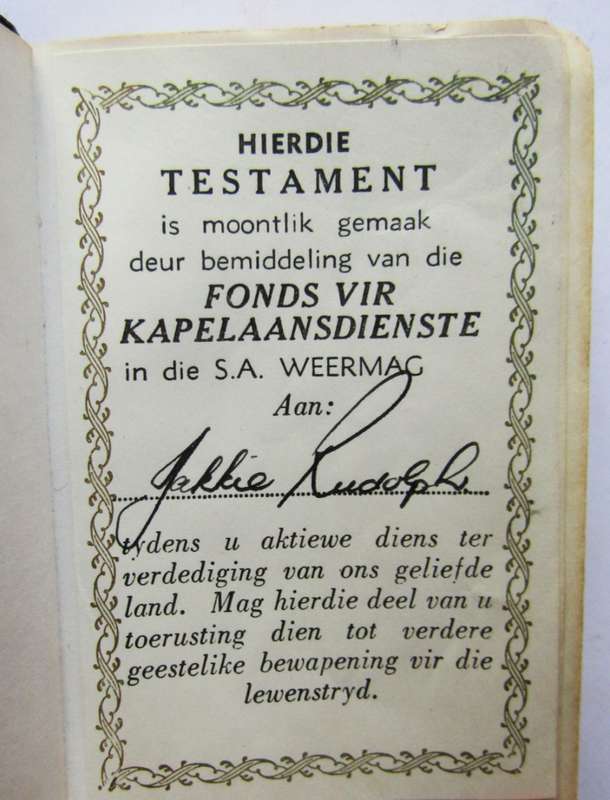 HIERDIE
TESTAMENT
is moontlik gemaak
deur bemiddeling van die
FONDS VIR
KAPELAANSDIENSTE
in die S.A. WEERMAG
Aan:
Jakkie Rudolph.
tydens u aktiewe diens ter
verdediging van ons geliefde
land. Mag hierdie deel van u
toerusting dien tot verdere
geestelike bewapening vir die
lewenstryd.